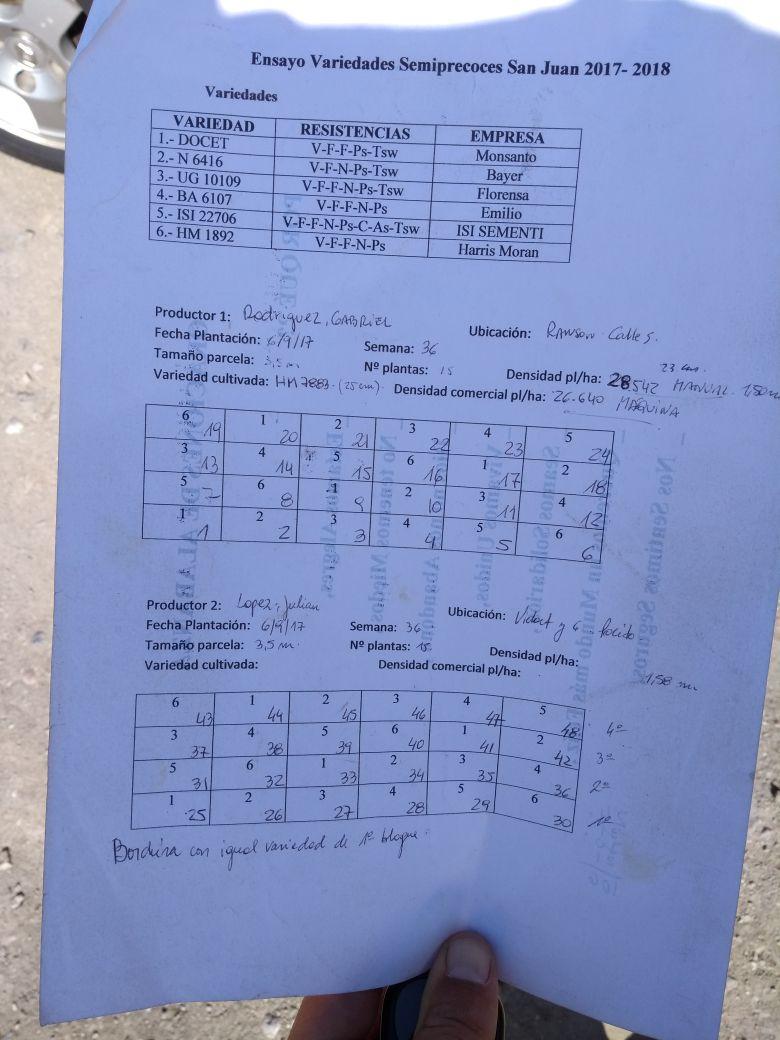 Ensayo Variedades Semiprecoces San Juan 2017- 2018
Variedades
VARIEDAD RESISTENCIAS EMPRESA
1.- DOCET V-F-F-Ps-Tsw Monsanto
2.- N 6416 V-F-N-Ps-Tsw Bayer
3.- UG 10109 V-F-F-N-Ps-Tsw Florensa
4.- BA 6107 V-F-F-N-Ps Emilio
5.- ISI 22706 V-F-F-N-Ps-C-As-Tsw ISI SEMENTI
6.- HM 1892 V-F-F-N-Ps Harris Moran
Productor 1: Rodriguez, GABRIEL Ubicación: RAWSON Calle 5.
Fecha Plantación: 6/9/17 Semana: 36
23 cm.
Tamaño parcela: 3,5 m Nº plantas: 15 Densidad pl/ha: 28542 MANUAL. 1,50 m
Variedad cultivada: HM 7883. (25 cm). Densidad comercial pl/ha: 26.640 MAQUINA
6 19 1 20 2 21 3 22 4 23 5 24
3 13 4 14 5 15 6 16 1 17 2 18
5 7 6 8 1 9 2 10 3 11 4 12
1 1 2 2 3 3 4 4 5 5 6 6
Productor 2: Lopez, Julian Ubicación: Vidart y 6
Fecha Plantación: 6/9/17 Semana: 36
Tamaño parcela: 3,5 m. Nº plantas: 15. Densidad pl/ha: 1,58 m
Variedad cultivada: Densidad comercial pl/ha:
6 43 1 44 2 45 3 46 4 47 5 48 4º
3 37 4 38 5 39 6 40 1 41 2 42 3º
5 31 6 32 1 33 2 34 3 35 4 36 2º
1 25 2 26 3 27 4 28 5 29 6 30 1º
Bordura con igual variedad de 1º bloque.